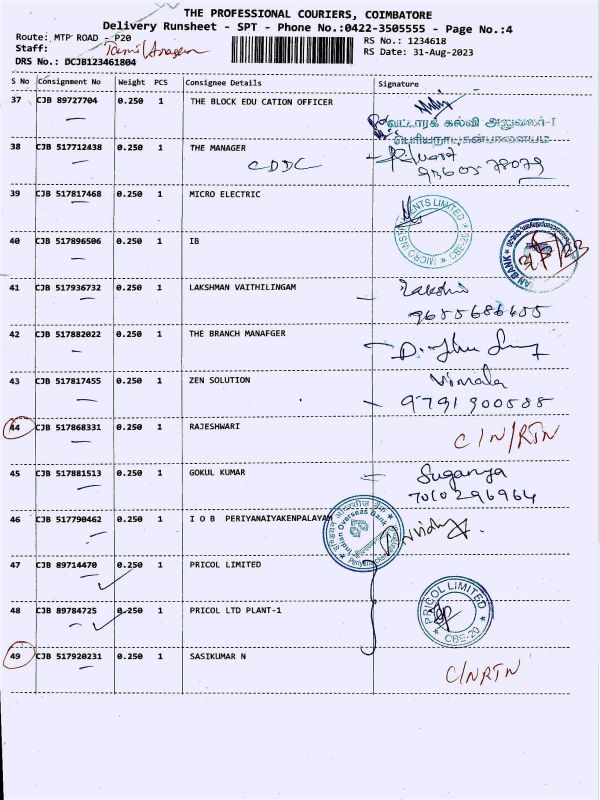 THE PROFESSIONAL COURIERS, COIMBATORE
Delivery Runsheet - SPT - Phone No.:0422-3505555 - Page No.:4
Route: MTP ROAD - P20
RS No.: 1234618
Staff:
RS Date: 31-Aug-2023
DRS No.: DCJB123461804
S No Consignment No Weight PCS Consignee Details Signature
37 CJB 89727704 0.250 1 THE BLOCK EDU CATION OFFICER
வட்டாரக் கல்வி அலுவலர்-I
பெரியநாயக்கன்பாளையம்
38 CJB 517712438 0.250 1 THE MANAGER
CDDC
39 CJB 517817468 0.250 1 MICRO ELECTRIC
MICRO INSTRUMENTS LIMITED CBE-20
40 CJB 517896506 0.250 1 IB
41 CJB 517936732 0.250 1 LAKSHMAN VAITHILINGAM
9655686455
42 CJB 517882022 0.250 1 THE BRANCH MANAFGER
43 CJB 517817455 0.250 1 ZEN SOLUTION Vimala
9791900585
44 CJB 517868331 0.250 1 RAJESHWARI C/N/RTN
45 CJB 517881513 0.250 1 GOKUL KUMAR Suganya
7010296964
46 CJB 517790462 0.250 1 I O B PERIYANAIYAKENPALAYAM
Indian Overseas Bank
47 CJB 89714470 0.250 1 PRICOL LIMITED
48 CJB 89784725 0.250 1 PRICOL LTD PLANT-1
PRICOL LIMITED CBE-20
49 CJB 517920231 0.250 1 SASIKUMAR N C/NRTN